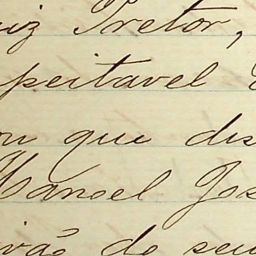 uiz Pretor,
peitavel
ou que dis
Manoel Jos
ivão do seu